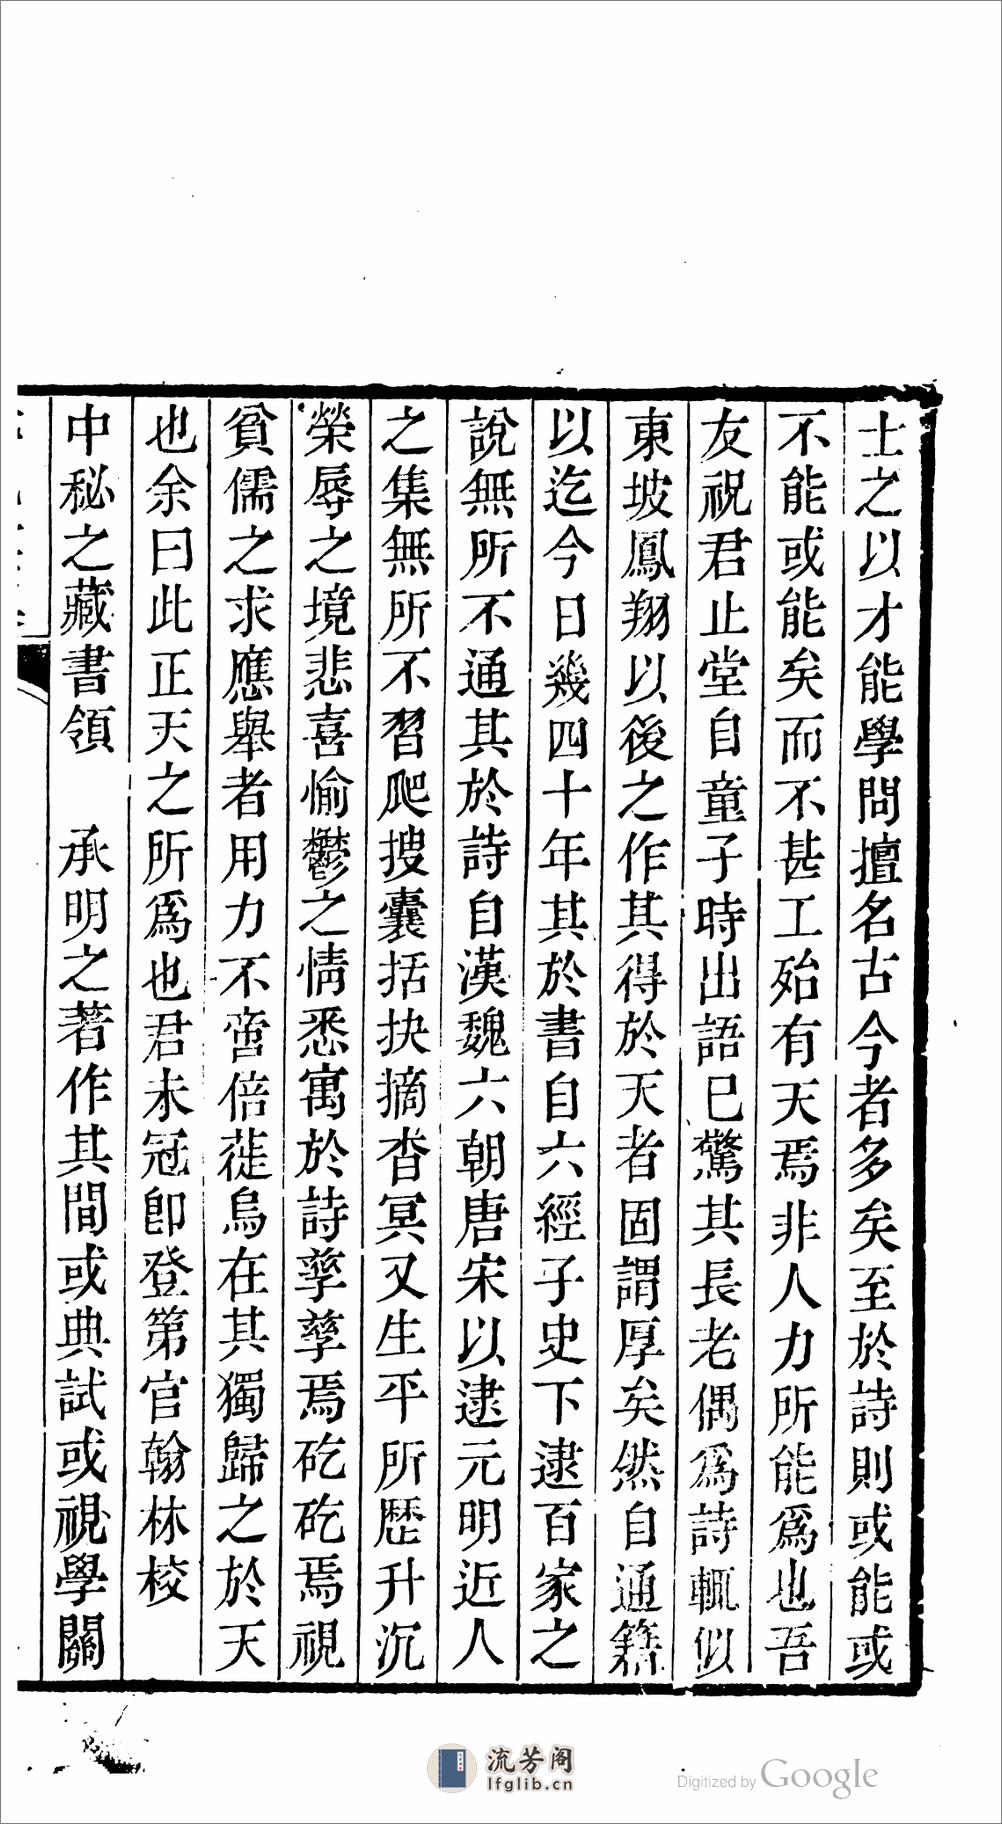 士之以才能學問擅名古今者多矣至於詩則或能或
不能或能矣而不甚工殆有天焉非人力所能爲也吾
友祝君止堂自童子時出語已驚其長老偶爲詩輒似
東坡鳳翔以後之作其得於天者固謂厚矣然自通籍
以迄今日幾四十年其於書自六經子史下逮百家之
說無所不通其於詩自漢魏六朝唐宋以逮元明近人
之集無所不習爬搜囊括抉摘杳冥又生平所歷升沉
榮辱之境悲喜愉鬱之情悉寓於詩孳孳焉矻矻焉視
貧儒之求應舉者用力不啻倍蓰烏在其獨歸之於天
也余曰此正天之所爲也君未冠卽登第官翰林校
中秘之藏書領 承明之著作其間或典試或視學關
流芳阁
lfglib.cn
Digitized by Google